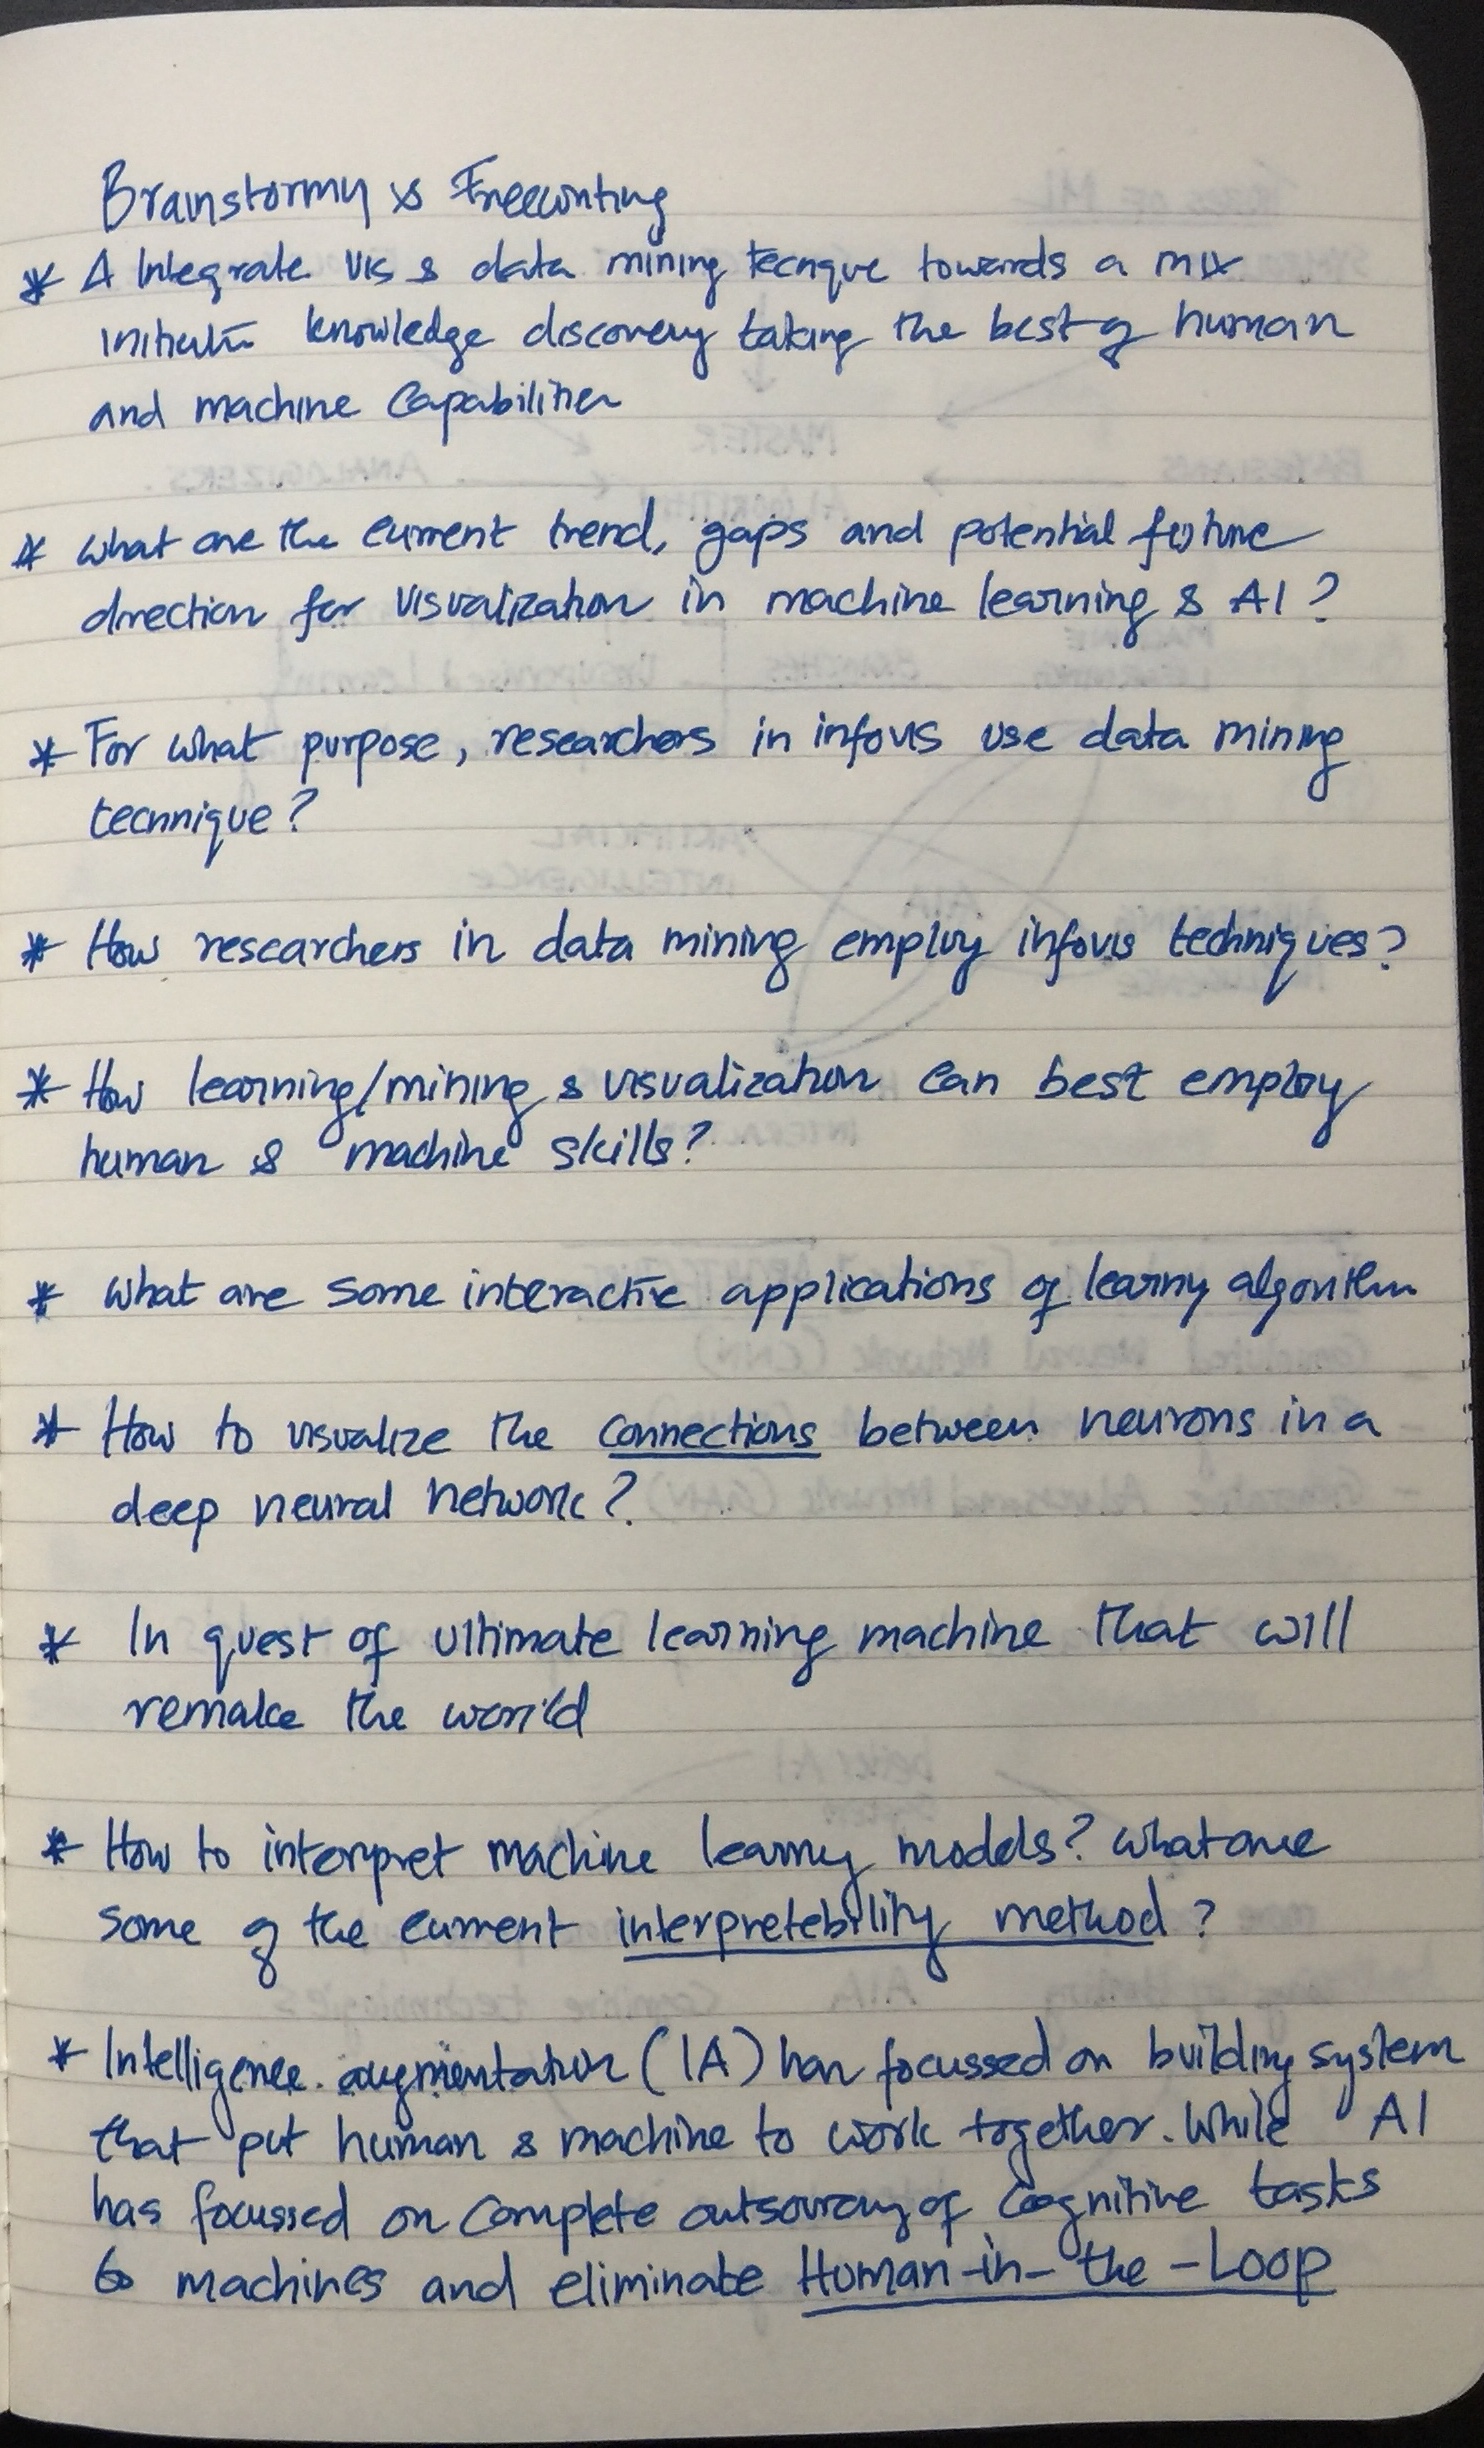 Brainstormy & Freewriting
* A Integrate Vis & data mining tecnque towards a mix
initiative knowledge discovery taking the best of human
and machine Capabilities
* what are the current trend, gaps and potential future
direction for visualization in machine learning & AI?
* For what purpose, researchers in infovis use data mining
technique?
* How researchers in data mining employ infovis techniques?
* How learning/mining & visualization can best employ
human & machine skills?
* what are some interactive applications of learny algorithm
* How to visualize the connections between neurons in a
deep neural network?
* In quest of ultimate learning machine that will
remake the world
* How to interpret machine learny models? what are
some of the current interpretebility method?
* Intelligence augmentation (IA) has focussed on building system
that put human & machine to work together. While AI
has focussed on complete outsourcing of cognitive tasks
to machines and eliminate Human-in-the-Loop